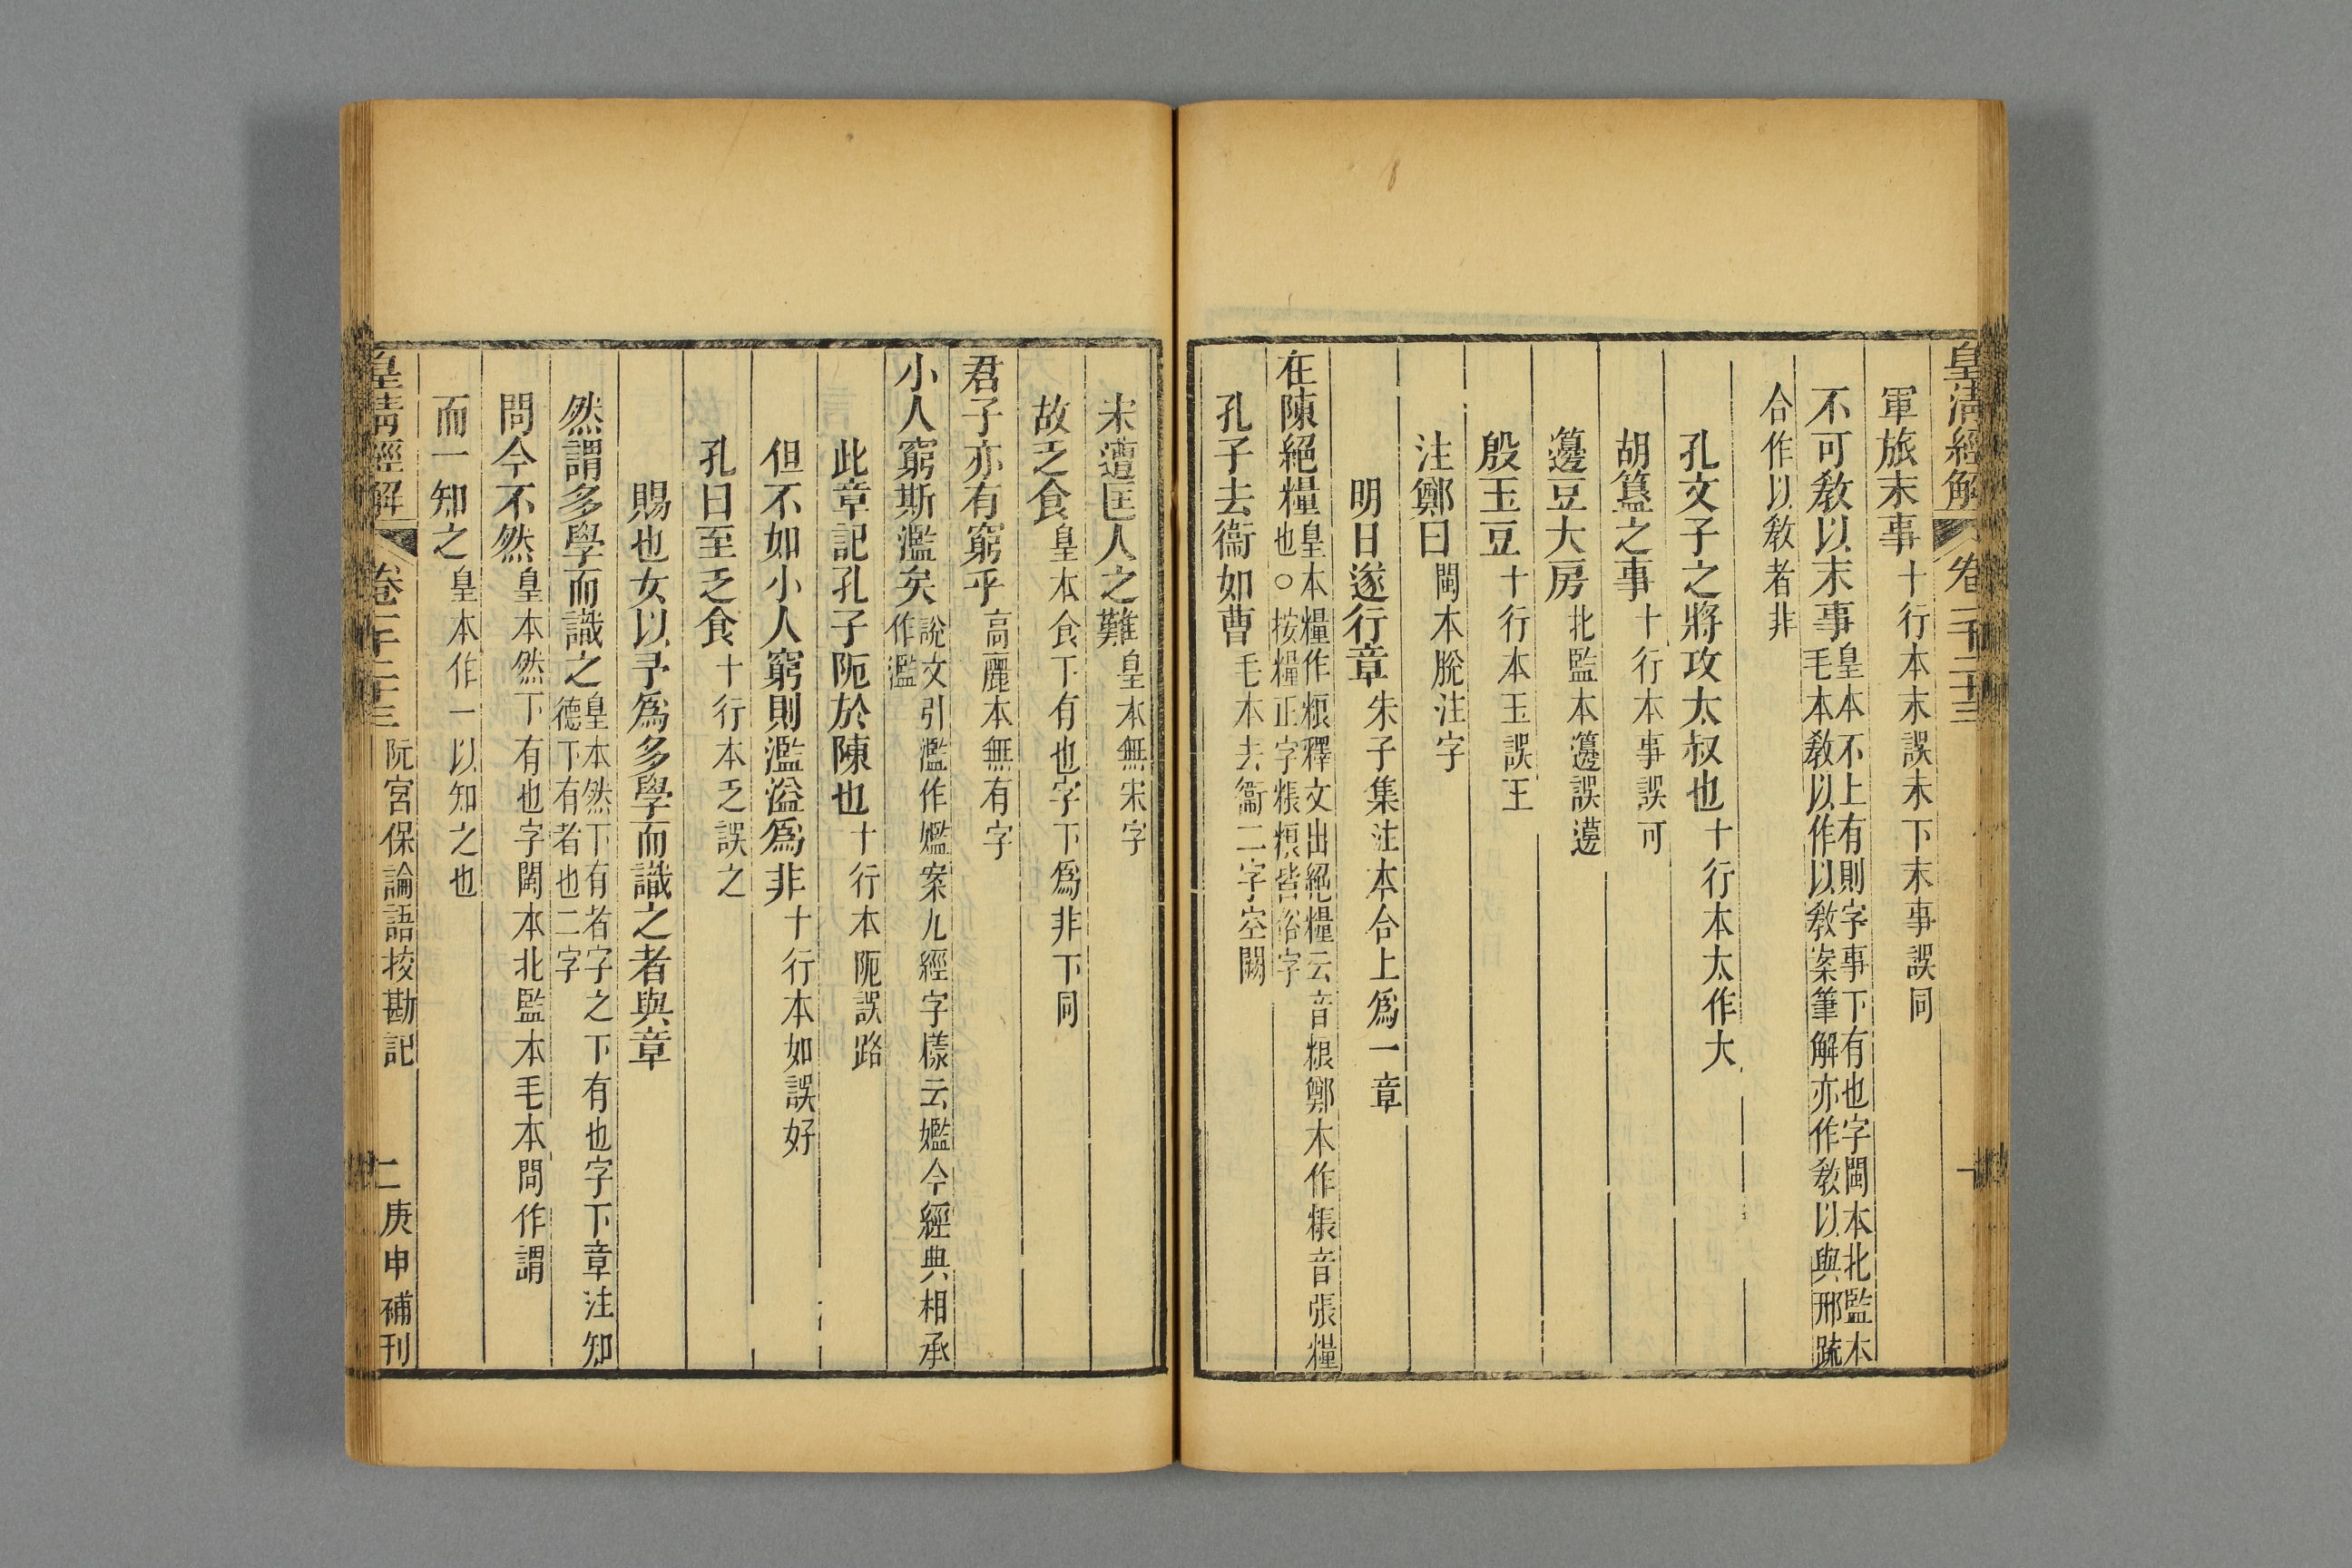 皇淸經解 卷一千二十三 一
軍旅末事十行本末誤未下末事誤同
不可敎以末事皇本不上有則字事下有也字閩本北監本
毛本敎以作以敎案筆解亦作敎以與邢䟽
合作以敎者非
孔文子之將攻太叔也十行本太作大
胡簋之事十行本事誤可
籩豆大房北監本籩誤邊
殷玉豆十行本玉誤王
注鄭曰閩本脫注字
明日遂行章朱子集注本合上爲一章
在陳絕糧皇本糧作粮釋文出絕糧云音粮鄭本作粻音張糧
也○按糧正字粻粮皆俗字
孔子去衞如曹毛本去衞二字空闕
宋遭匡人之難皇本無宋字
故乏食皇本食下有也字下爲非下同
君子亦有窮乎高麗本無有字
小人窮斯濫矣說文引濫作㜮案九經字樣云㜮今經典相承
作濫
此章記孔子阨於陳也十行本阨誤路
但不如小人窮則濫溢爲非十行本如誤好
孔曰至乏食十行本乏誤之
賜也女以予爲多學而識之者與章
然謂多學而識之皇本然下有者字之下有也字下章注知
德下有者也二字
問今不然皇本然下有也字閩本北監本毛本問作謂
而一知之皇本作一以知之也
皇淸經解 卷一千二十三 阮宮保論語挍勘記 二 庚申補刊